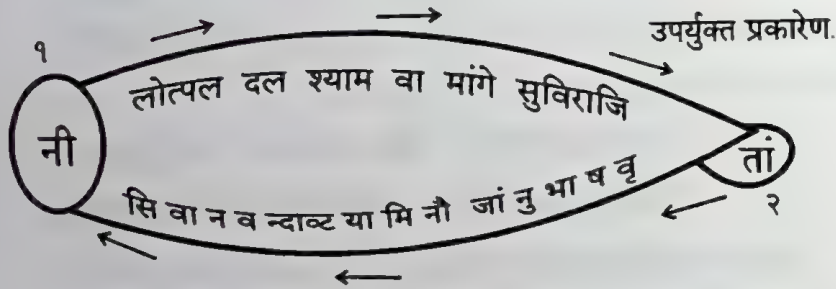 उपर्युक्त प्रकारेण.
१
लोत्पल दल श्याम वा मांगे सुविराजि
नी
तां
सि वा न व न्दाव्ट या मि नौ जां नु भा ष वृ
२